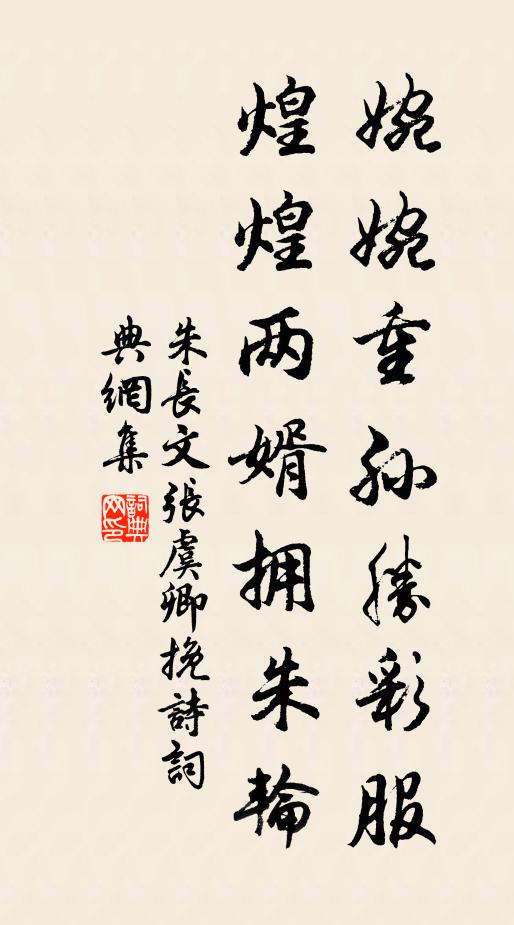 婉婉重孫勝彩服
煌煌两婿拥朱輪
朱長文張虞卿挽詩詞
典網集
詞典網印